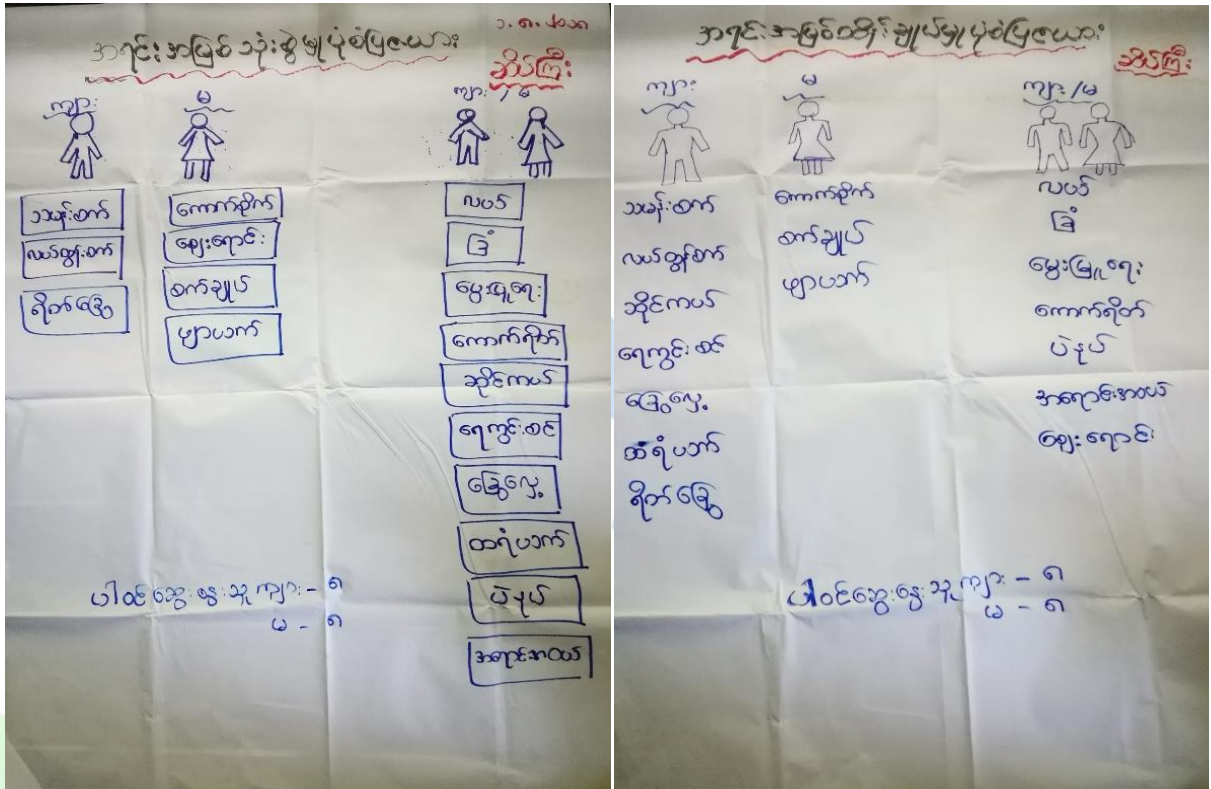 ၁.၈.၂၀၁၈
အရင်းအမြစ် သုံးစွဲမှုပုံစံပြဇယား
ဆိပ်ကြီး
ကျား
မ
ကျား / မ
သမန်းစက်
လယ်ထွန်စက်
ရိတ်ခြွေ
ကောက်စိုက်
ဈေးရောင်း
စက်ချုပ်
ဖျာပဘက်
လယ်
ခြံ
မွေးမြူရေး
ကောက်ရိတ်
ဆိုင်ကယ်
ရေကွင်းစင်
ခြွေလှေ့
ထရံပဘက်
ပဲနုပ်
အရောင်းအဝယ်
ပါဝင်ဆွေးနွေးသူ ကျား - ၈
မ - ၈
အရင်းအမြစ်ထိန်းချုပ်မှုပုံစံပြဇယား
ဆိပ်ကြီး
ကျား
မ
ကျား / မ
သမန်းစက်
လယ်ထွန်စက်
ဆိုင်ကယ်
ရေကွင်းစင်
ခြွေလှေ့
ထရံပဘက်
ရိတ်ခြွေ
ကောက်စိုက်
စက်ချုပ်
ဖျာပဘက်
လယ်
ခြံ
မွေးမြူရေး
ကောက်ရိတ်
ပဲနုပ်
အရောင်းအဝယ်
ဈေးရောင်း
ပါဝင်ဆွေးနွေးသူ ကျား - ၈
မ - ၈